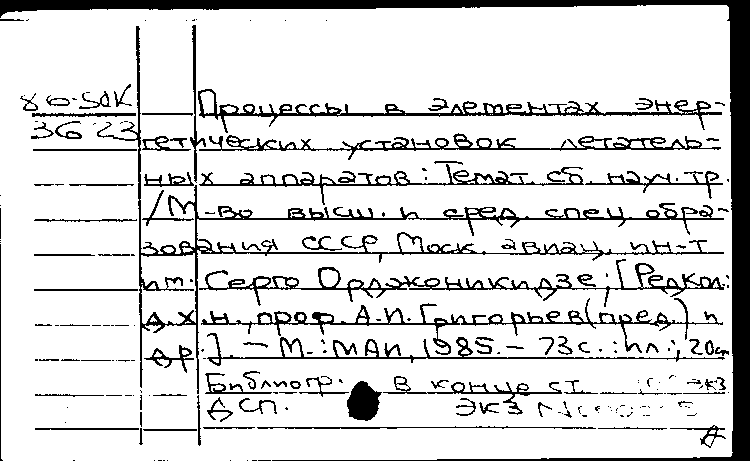 86-5ДК Процессы в элементах энер-
3623 гетических установок летатель-
ных аппаратов: Темат. сб. науч. тр.
/М-во высш. и сред. спец. обра-
зования СССР, Моск. авиац. ин-т
им. Серго Орджоникидзе; [Редкол.:
д.х.н., проф. А.И. Григорьев (пред.) и
др.]. – М.: МАИ, 1985. – 73с.: ил.; 20см
Библиогр. в конце ст. экз
ДСП. ЭКЗ